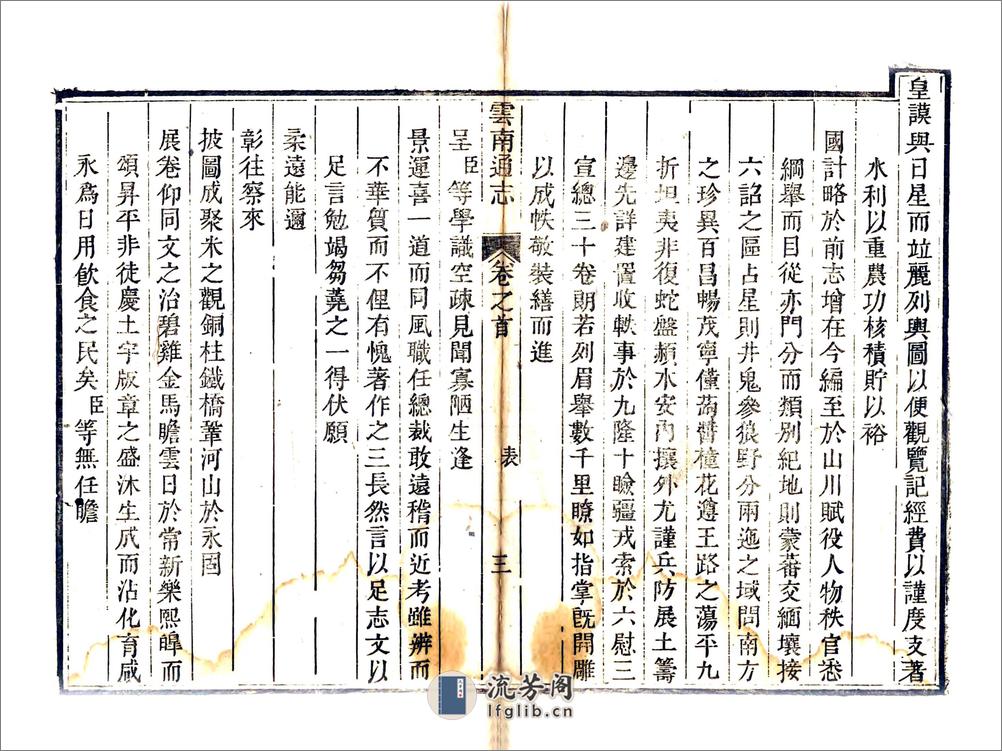 皇謨與日星而竝麗列輿圖以便觀覽記經費以謹度支著
水利以重農功核積貯以裕
國計略於前志增在今編至於山川賦役人物秩官悉
綱舉而目從亦門分而類別紀地則蒙蕃交緬壤接
六詔之區占星則井鬼參狼野分兩迤之域問南方
之珍異百昌暢茂寧僅蒟醬橦花遵王路之蕩平九
折坦夷非復蛇盤頻水安內攘外尤謹兵防展土籌
邊先詳建置收軼事於九隆十瞼疆戎索於六慰三
宣總三十卷朗若列眉舉數千里瞭如指掌旣開雕
以成帙敬裝繕而進
雲南通志 卷之首 表 三
呈臣等學識空疎見聞寡陋生逢
景運喜一道而同風職任總裁敢遠稽而近考雖辨而
不華質而不俚有愧著作之三長然言以足志文以
足言勉竭芻蕘之一得伏願
柔遠能邇
彰往察來
披圖成聚米之觀銅柱鐵橋鞏河山於永固
展卷仰同文之治碧雞金馬瞻雲日於常新樂熙皞而
頌昇平非徒慶土宇版章之盛沐生成而沾化育咸
永爲日用飮食之民矣臣等無任瞻
流芳阁
lfglib.cn